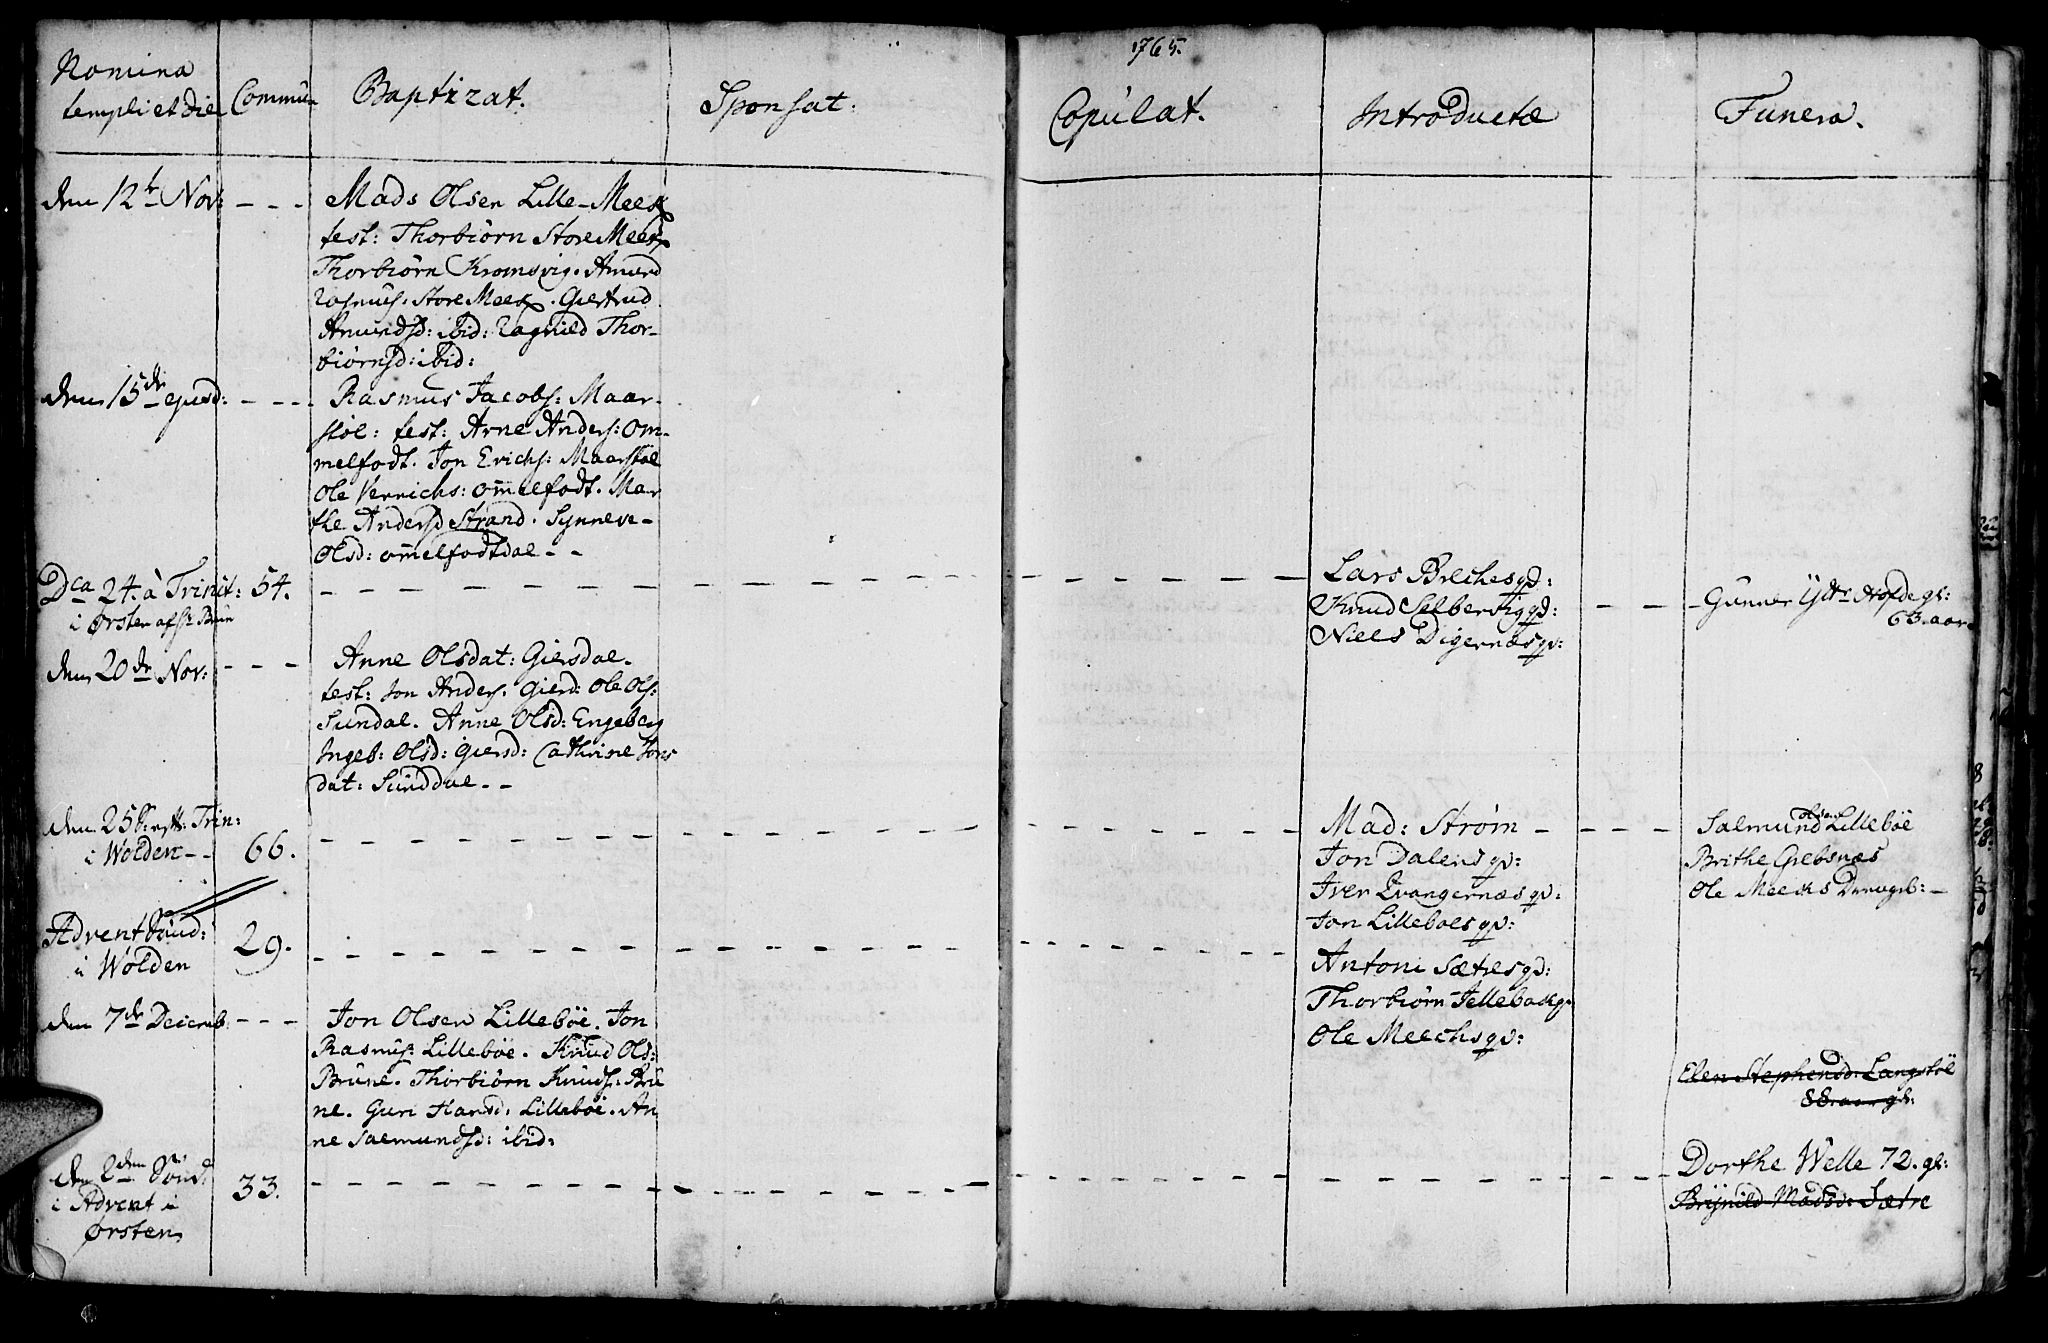 1765.
Nomina
templi et die
Commun
Baptizat.
Sponsat:
Copulat.
Introductæ
Funera.
den 12te Nov: - - -
Mads Olsen Lille-Meex
test: Thorbiørn Store Meex
Thorbiørn Kromsvig. Amund
Rasmus. Store Meex. Giertrud
Amundsd: ibid: Ragnild Thor-
biørnsd: ibid:
den 15de ejusd: - - - -
Rasmus Jacobs: Maar-
støl: test: Arne Anders: Om-
melfodt. Jon Erichs: Maarstøl
Ole Verrichs: ommelfodt. Mar
the Andersd Strand. Synneve-
Olsd: ommelfodtdal - -
Dca 24. à Trinit: 54.
i Ørsten af Hr Brun
Lars Brechesqv:
Knud Selbervigqv:
Niels Digernæsqv:
Gunner Hofde gl:
63. aar
den 20de Nov: - - -
Anne Olsdat: Giersdal.
test: Jon Anders. Gierd: Ole Ols:
Sundal. Anne Olsd: Engeberg
Ingeb: Olsd: Giersd: Cathrine Jons
dat: Sunddal - -
den 25de: eft: Trin:
i Wolden - - 66.
Mad: Strøm
Jon Dalens qv:
Iver Qvangernæs qv:
Jon Lilleboes qv:
Salmund olsen Lillebøe
Brithe Giebsnæs
Ole Meechs Drengeb: -
Advent Sønd: 29.
i Wolden
Antoni Sætres qv:
Thorbiørn Jellebachqv
Ole Meechs qv:
den 7de Decemb: - - -
Jon Olsen Lillebøe. Jon
Rasmus: Lillebøe. Knud Ols:
Brune. Thorbiørn Knuds: Bru
ne. Guri Hansd: Lillebøe. An
ne Salmundsd: ibid:
Elen Stephensd: Langstøl
88 aar gl:
den 2den Sønd: 33.
i Advent i
Ørsten
Dorthe Welle 72. gl:
Brynild Madsd: Sætre